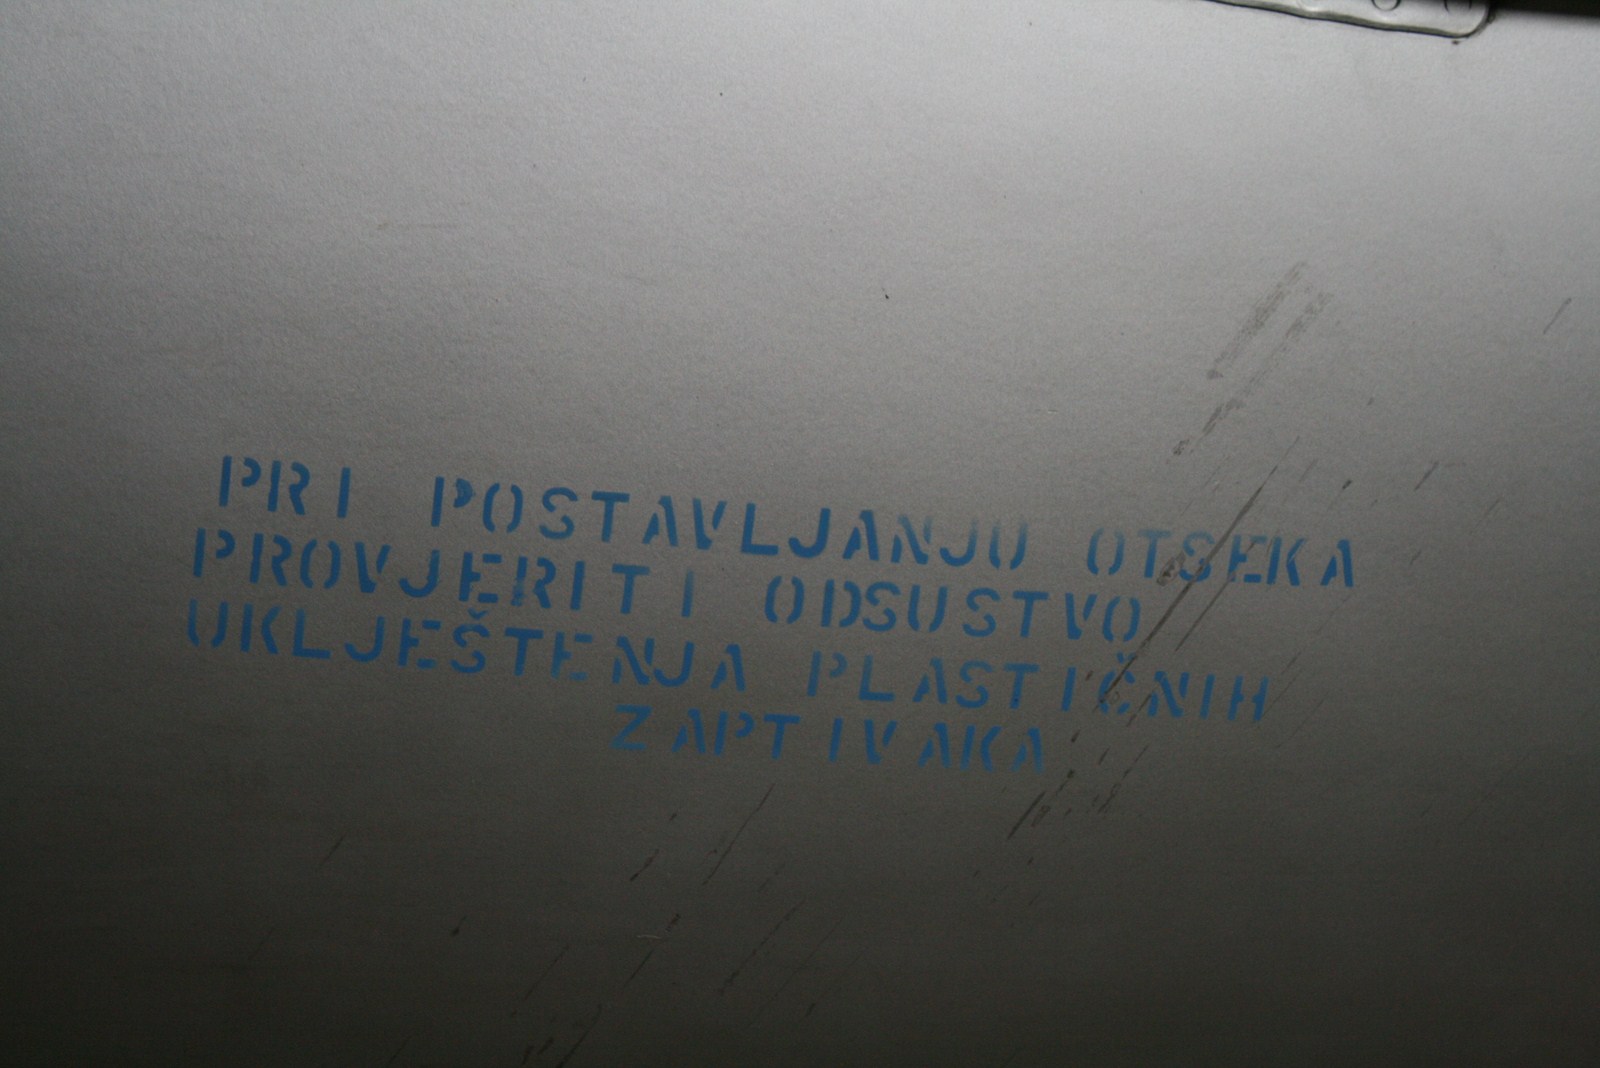 PRI POSTAVLJANJU OTSEKA
PROVJERITI ODSUSTVO
UKLJEŠTENJA PLASTIČNIH
ZAPTIVAKA